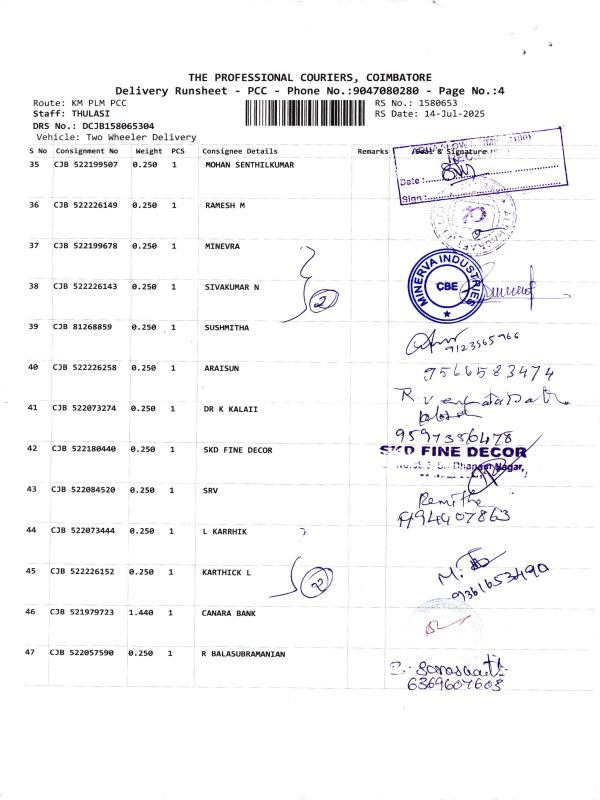 THE PROFESSIONAL COURIERS, COIMBATORE
Delivery Runsheet - PCC - Phone No.:9047080280 - Page No.:4
Route: KM PLM PCC RS No.: 1580653
Staff: THULASI RS Date: 14-Jul-2025
DRS No.: DCJB158065304
Vehicle: Two Wheeler Delivery
S No Consignment No Weight PCS Consignee Details Remarks Seal & Signature
35 CJB 522199507 0.250 1 MOHAN SENTHILKUMAR
Date:
Sign:
36 CJB 522226149 0.250 1 RAMESH M
37 CJB 522199678 0.250 1 MINEVRA
MINERVA INDUSTRIES
CBE
38 CJB 522226143 0.250 1 SIVAKUMAR N
2
39 CJB 81268859 0.250 1 SUSHMITHA
9123565966
40 CJB 522226258 0.250 1 ARAISUN
9566583474
41 CJB 522073274 0.250 1 DR K KALAII
9597356478
42 CJB 522180440 0.250 1 SKD FINE DECOR
SKD FINE DECOR
Dhanam Nagar,
43 CJB 522084520 0.250 1 SRV
44 CJB 522073444 0.250 1 L KARRHIK
45 CJB 522226152 0.250 1 KARTHICK L
2
M.
9361653490
46 CJB 521979723 1.440 1 CANARA BANK
47 CJB 522057590 0.250 1 R BALASUBRAMANIAN
6369607603